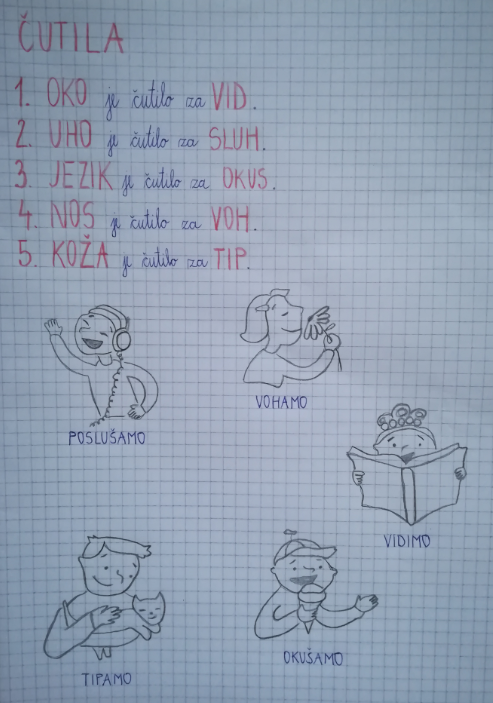 ČUTILA
1. OKO je čutilo za VID.
2. UHO je čutilo za SLUH.
3. JEZIK je čutilo za OKUS.
4. NOS je čutilo za VOH.
5. KOŽA je čutilo za TIP.
VOHAMO
POSLUŠAMO
VIDIMO
OKUŠAMO
TIPAMO